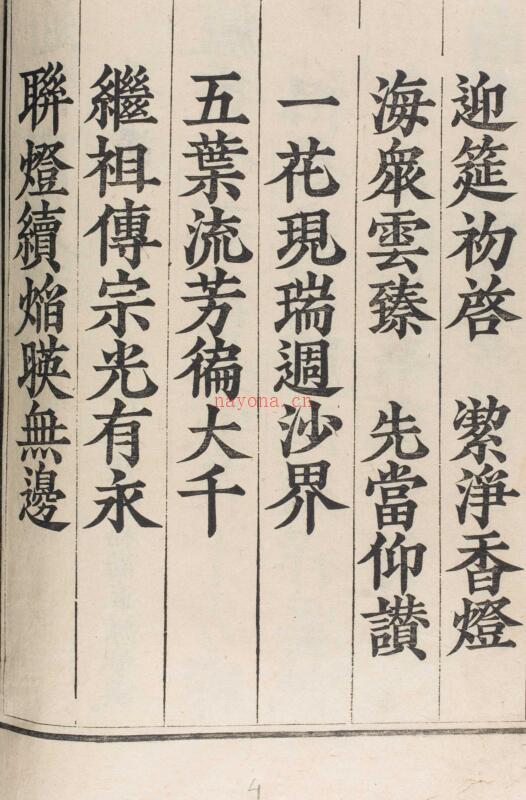 迎筵初啓　潔淨香燈
海衆雲臻　先當仰讚
一花現瑞週沙界
五葉流芳徧大千
繼祖傳宗光有永
聯燈續焰暎無邊
nayona.cn
4